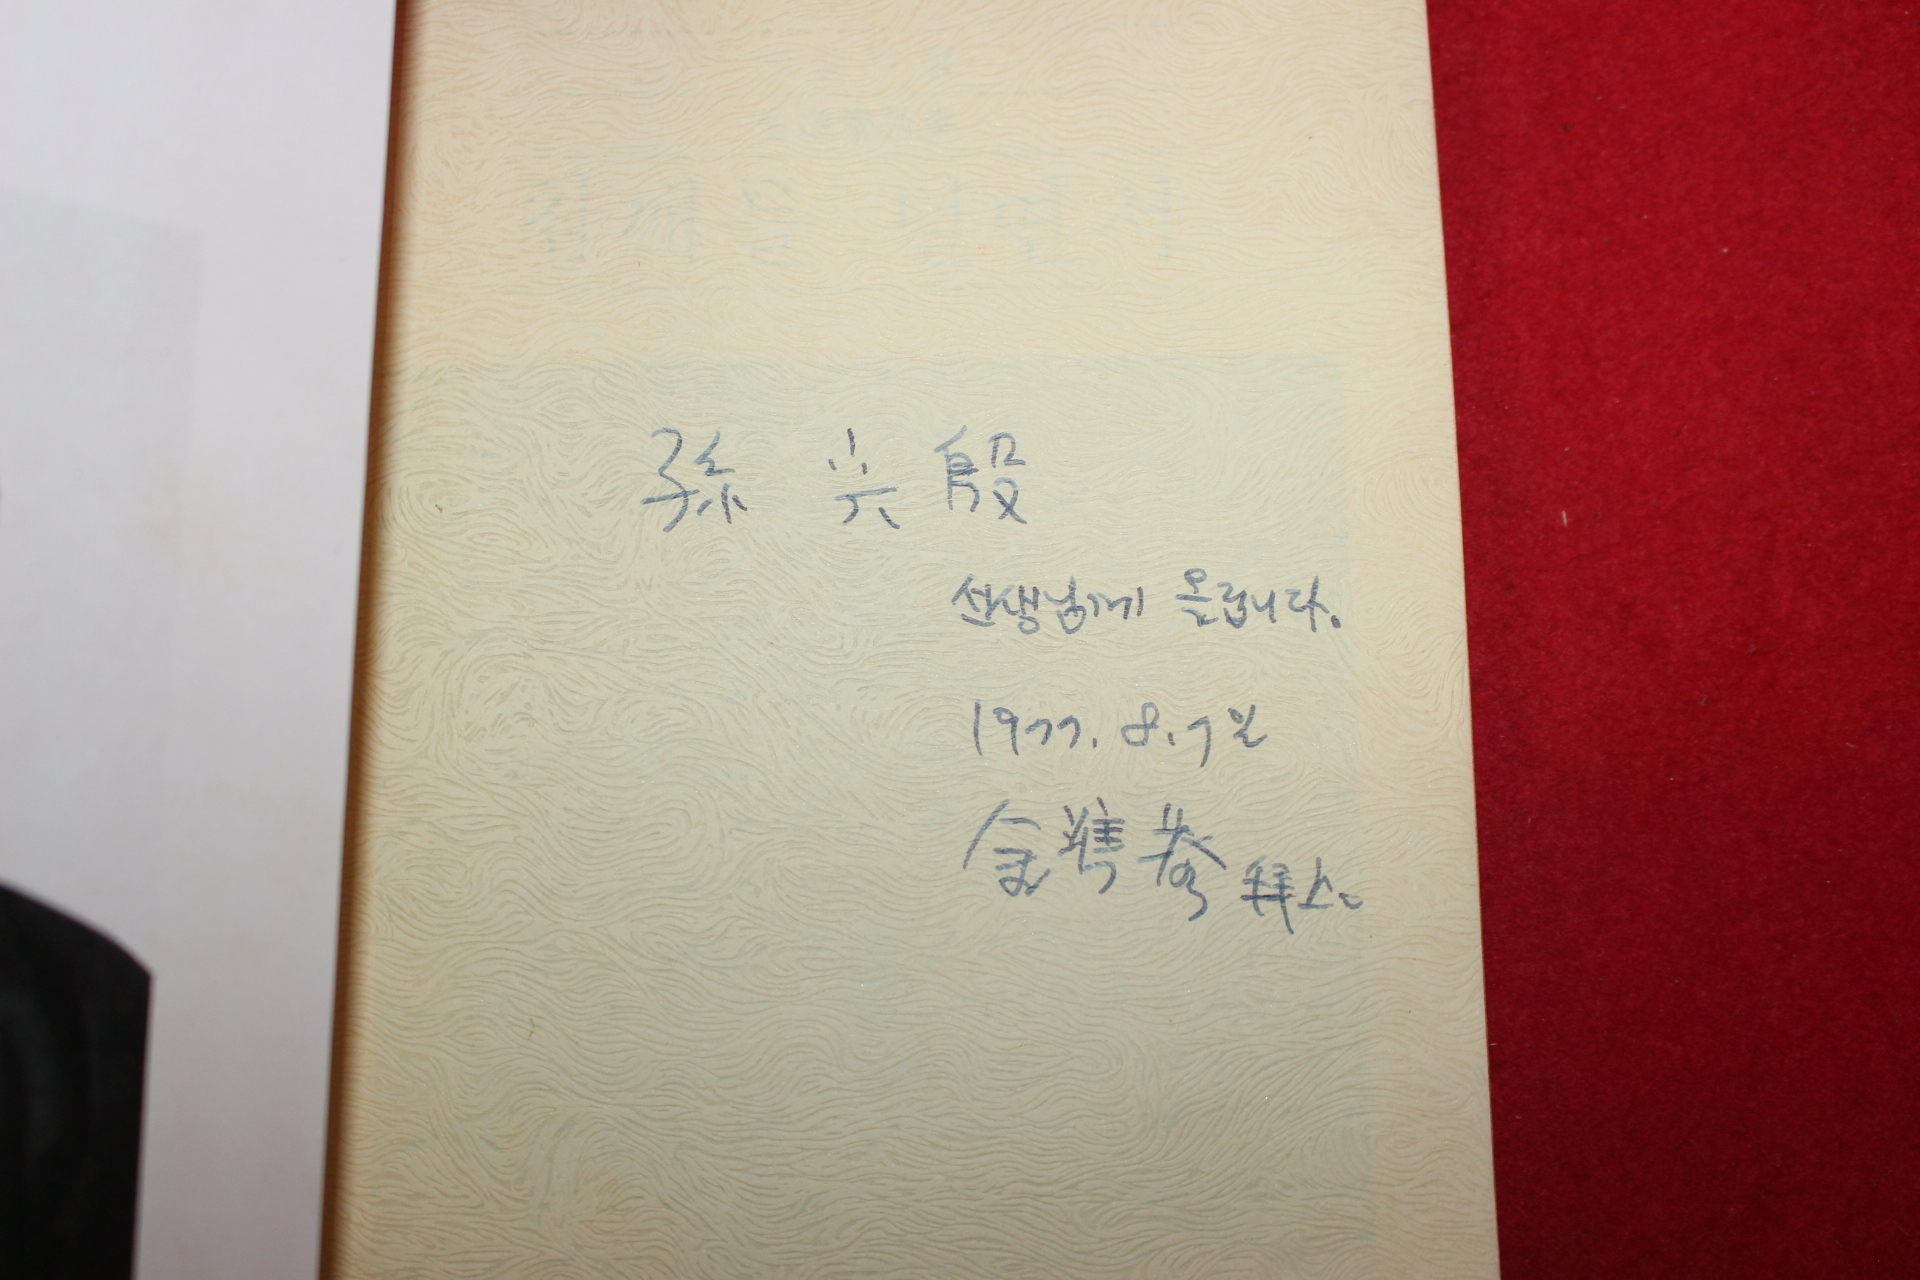 孫 光 殷
선생님께 올립니다.
1977. 8. 7일
金準泰 拜上